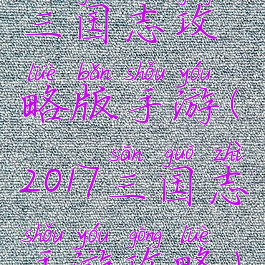 三国志攻
lüè bǎn shǒu yóu
略版手游(
sān guó zhì
2017三国志
shǒu yóu gōng lüè
手游攻略)